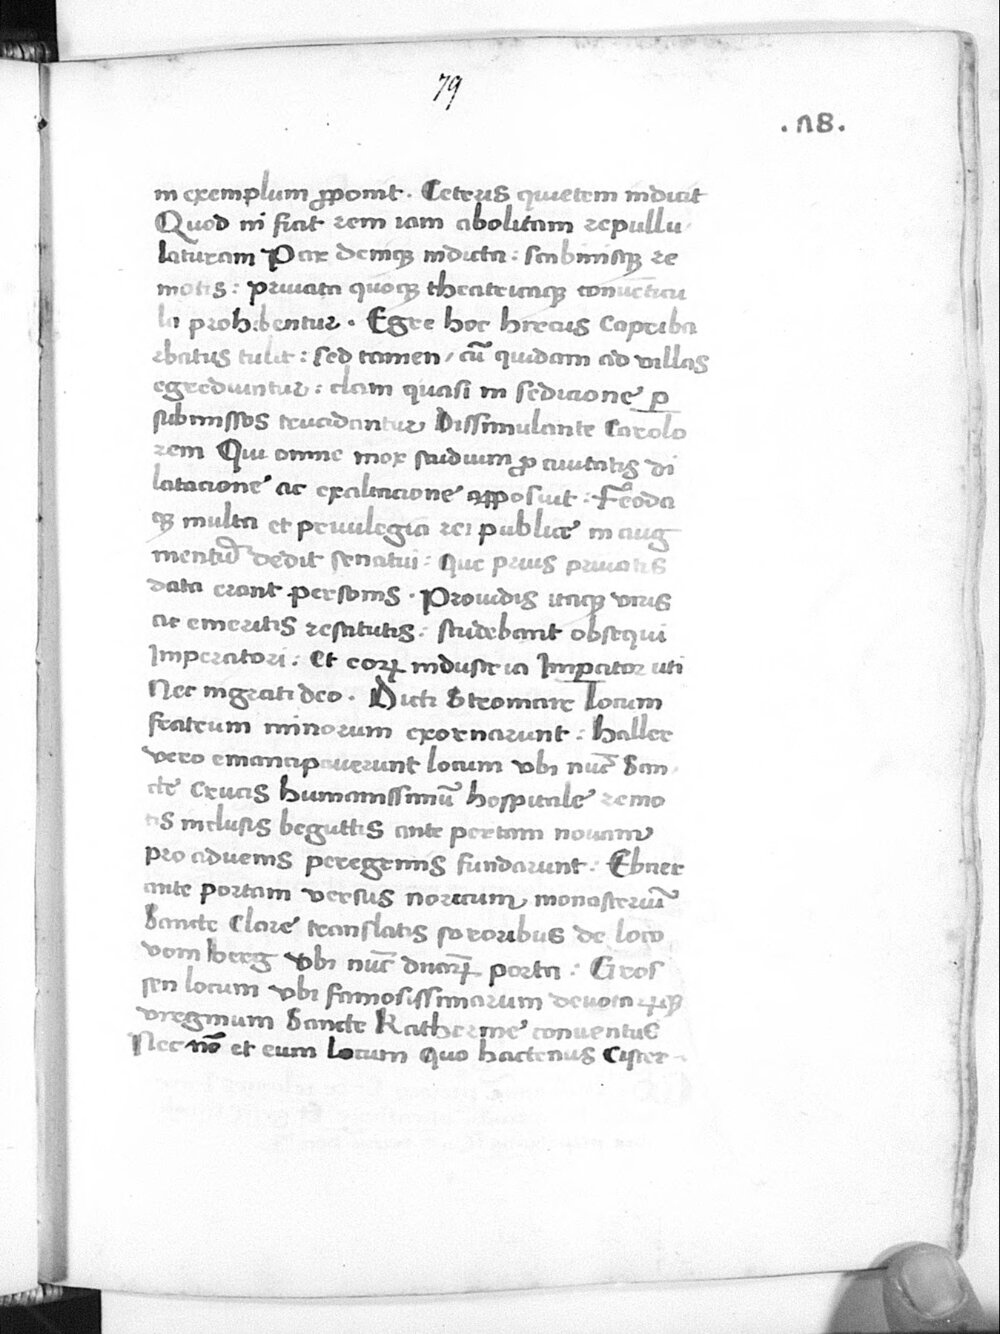 79
.78.
in exemplum ꝓponit. Ceteris quietem indicit
Quod ni fiat rem iam abolitam repullu
laturam Pax demꝗ indicta: scabinisꝗ re
motis: priuata quoꝗ theatricaꝗ conuẽticu
la prohibentur. Egre hoc hircus Capriba
rbatus tulit: sed tamen, cũ quidam ad villas
egrediuntur: clam quasi in sedicione p̱
submissos trucidantur Dissimulante Carolo
rem Qui omne mox studium ꝓ ciuitatis di
latacione ac exaltacione apposuit: Feoda
ꝗ multa et priuilegia rei publice in aug
mentũ dedit senatui: que prius priuatis
data erant personis. Prouidis itaꝗ viris
ac emeritis restitutis: studebant obsequi
Imperatori: Et eoꝝ industria Imꝑator uti
Nec ingrati deo. Dicti Stromare locum
fratrum minorum exornarunt: Haller
vero emancipauerunt locum vbi nũc San
cte Crucis humanissimũ hospitale remo
tis inclusis beguttis ante portam nouam
pro aduenis peregrinis fundarunt: Ebner
ante portam versus noricum monasteriũ
Sancte Clare translatis sororibus de loco
vom berg vbi nũc duaꝝ porta: Gros
sen locum vbi famosissimarum deuotaꝝꝗ
virginum Sancte Katherine conuentus
Nec nõ et eum locum quo hactenus Cister